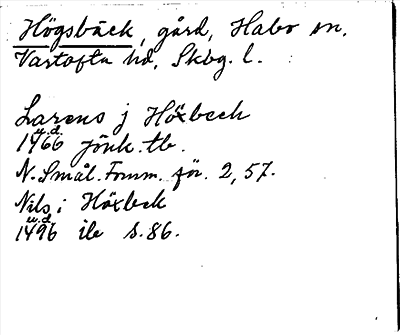 Högsbäck, gård, Habo sn.
Vartofta hd, Skbg. l.
Larens j Höxbech
u.d.
1466 Jönk. tb.
N. Smål. Fornm. för. 2, 57.
Nils i Höxbek
u.d.
1496 ib s. 86.